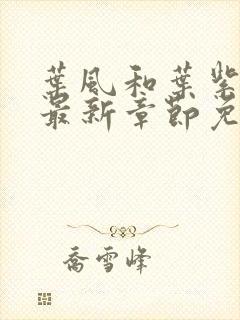 葉風和葉紫
最新章節免
喬雪峰